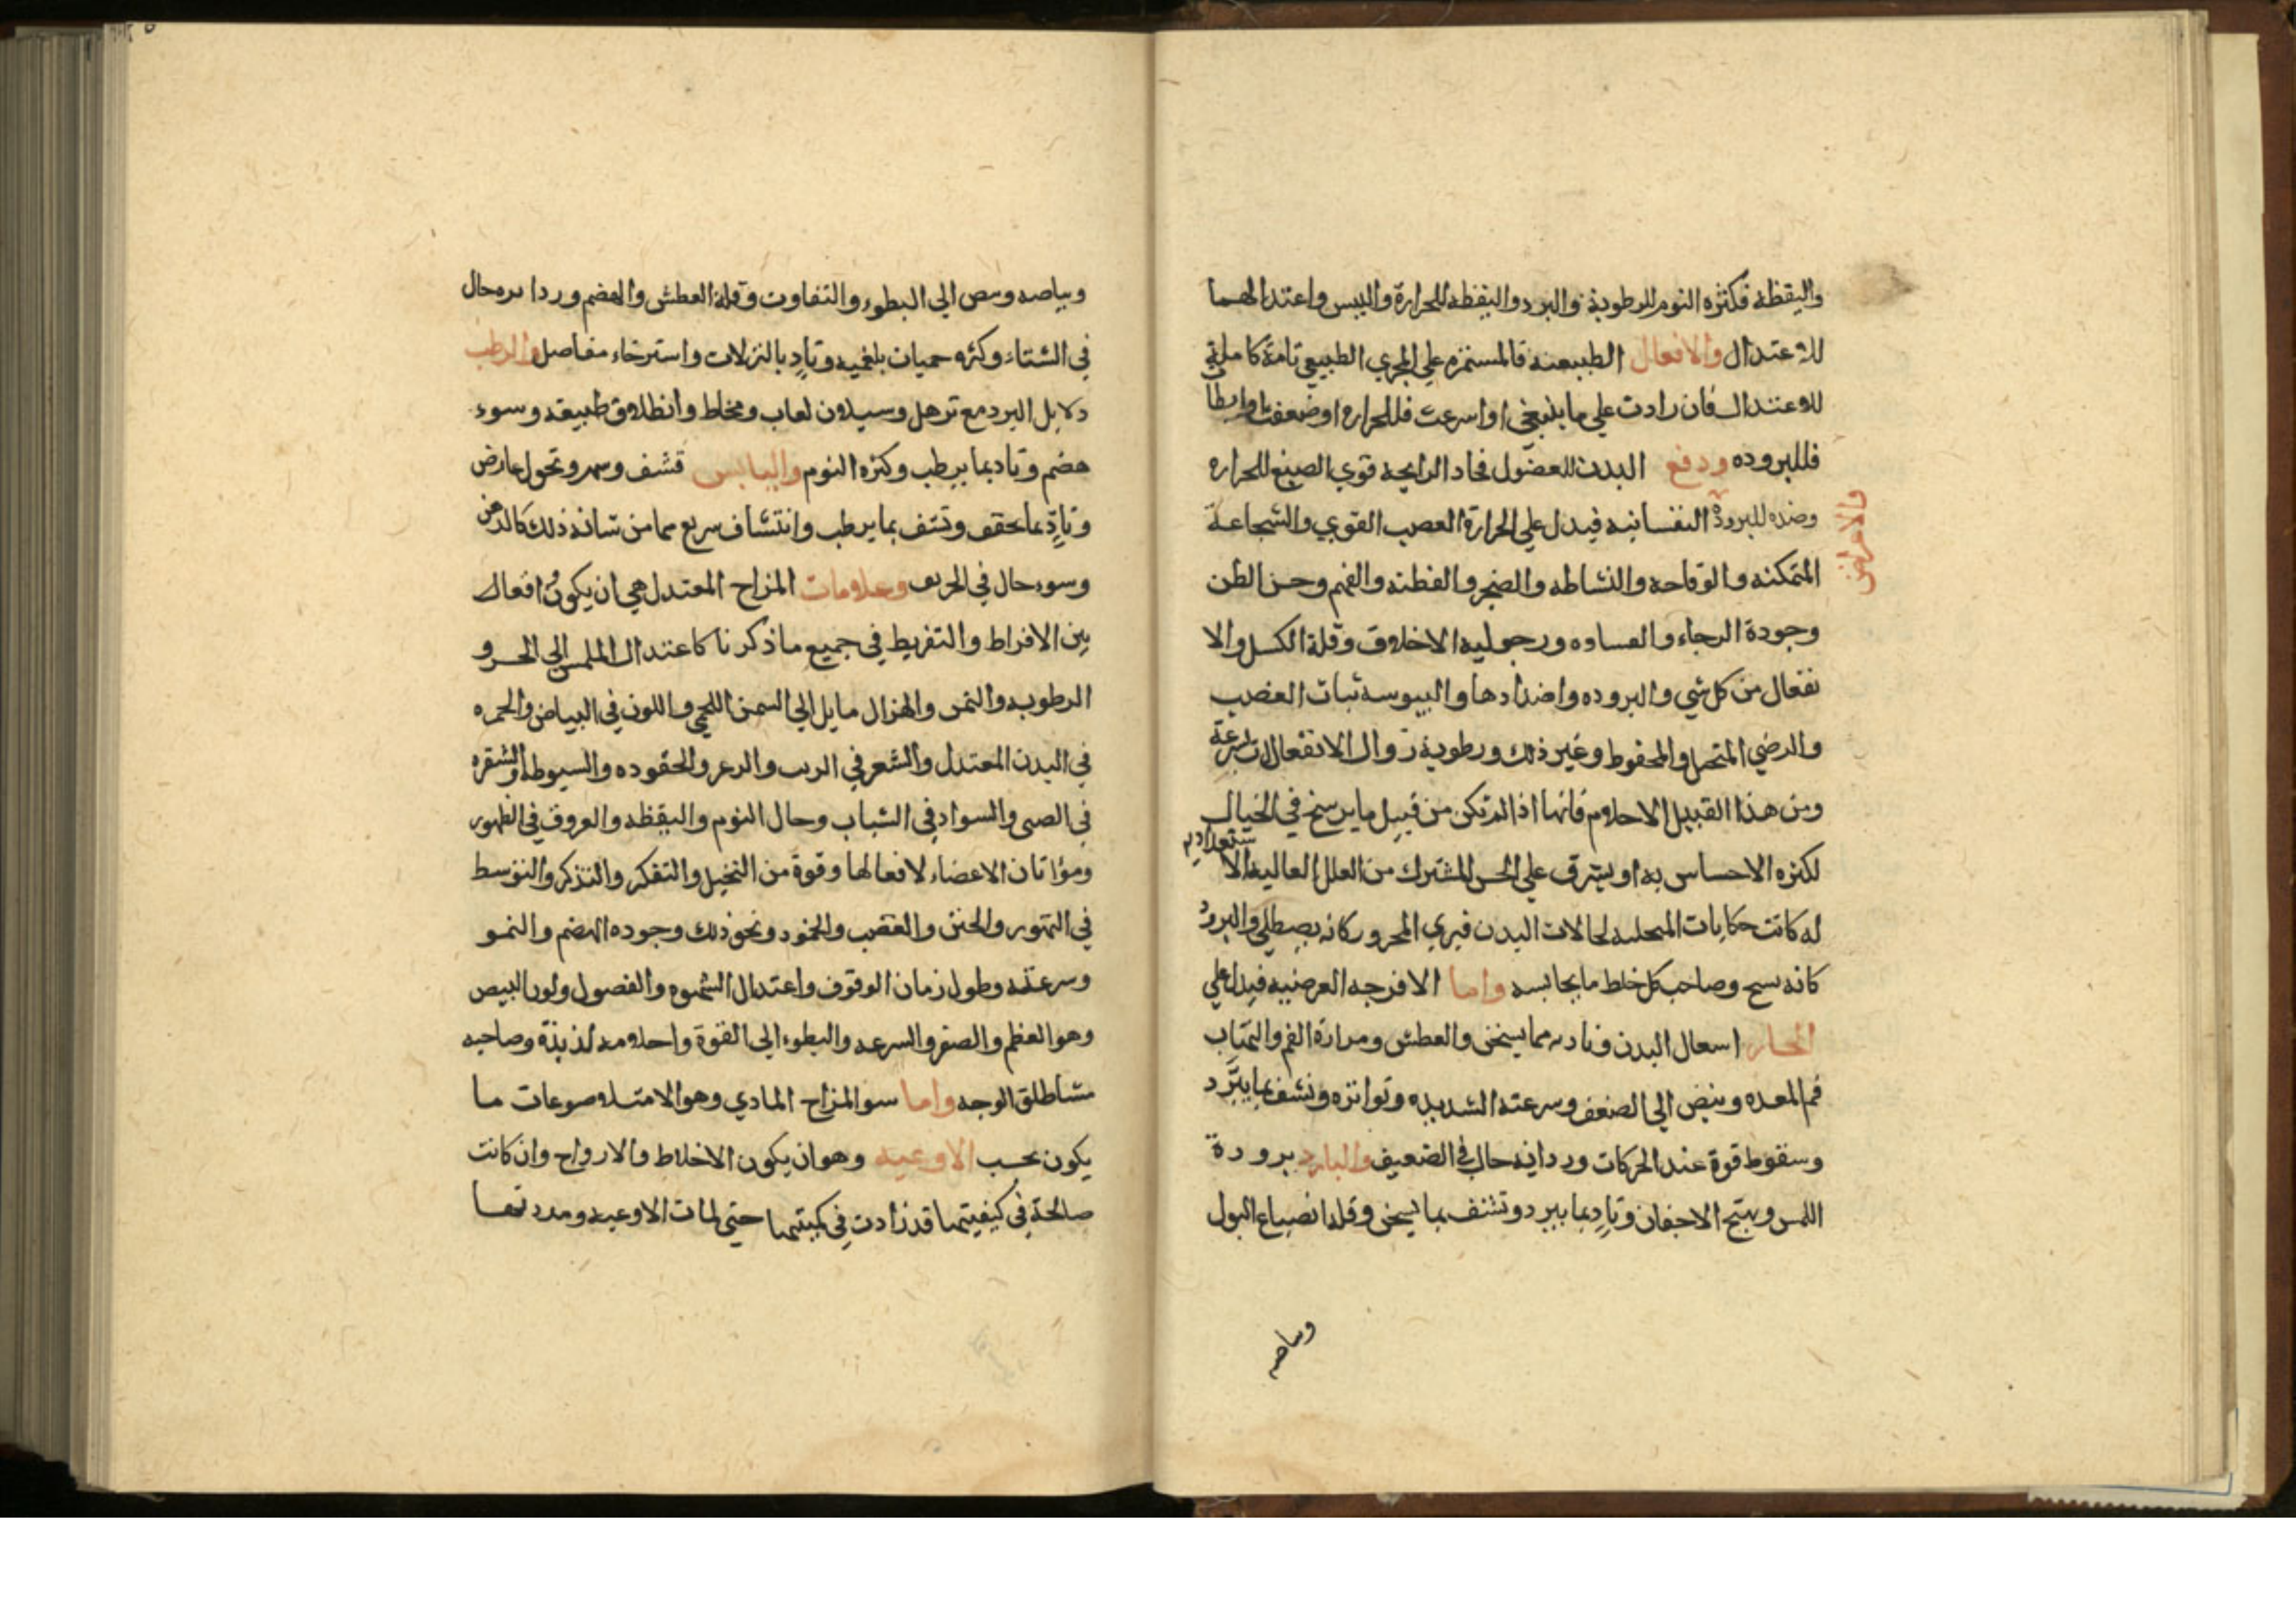 واليقظة فكثره النوم للرطوبة والبرد واليقظه للحرارة واليبس واعتدالهما
للاعتدال والافعال الطبيعيه فالمستمره علي المجري الطبيعي تامة كاملة
للاعتدال فان زادت علي ما ينبغي او اسرعت فللحراره او ضعفت او ابطأت
فللبروده ودفع البدن للفضول فحاد الرايحه قوي الصبغ للحراره
وضده للبرودة النفسانيه فيدل علي الحرارة الغضب القوي والشجاعة
والاعراض
المتمكنه والوقاحه والنشاطه والضجر والفطنه والفهم وحسن الظن
وجودة الرجاء والقساوه ورجوليه الاخلاق وقلة الكسل والا
نفعال من كل شي والبروده واضدادها واليبوسه ثبات الغضب
والرضي المتخيل والمحفوظ وغير ذلك ورطوبة زوال الانفعالات بسرعة
ومن هذا القبيل الاحلام فانها اذا لم تكن من قبيل ما يرسخ في الخيال
لكثره الاحساس به او يشرق علي الحس المشترك من العلل العاليه الا
ستعداد
له كانت حكايات المتخيله لحالات البدن فيري المحرور كانه يصطلي والبرود
كانه يسبح وصاحب كل خلط ما يجانسه واما الامزجه العرضيه فيدل علي
الحار اشعال البدن وتاديه مما يسخن والعطش ومرارة الفم والتهاب
فم المعده ونبض الي الضعف وسرعته الشديده وتواتره وتشف بما يبرد
وسقوط قوة عند الحركات ورداية حال في الصيف والبارد برودة
اللمس وتهيج الاجفان وتاد بما يبرد وتشف بما يسخن وقلة انصباغ البول
وبياضه
وبياضه ونبض الي البطوء والتفاوت وقلة العطش والهضم ورداءه حال
في الشتاء وكثره حميات بلغميه وتاد بالنزلات واسترخاء مفاصل والرطب
دلايل البرد مع ترهل وسيلان لعاب ومخاط وانطلاق طبيعته وسوء
هضم وتاد بما يرطب وكثره النوم واليابس قشف وسهر ونحول عارض
وتاد بما يجفف وتشف بما يرطب وانتشاف سريع مما من شانه ذلك كالدهن
وسوء حال في الخريف وعلامات المزاج المعتدل هي ان يكون افعاله
بين الافراط والتفريط في جميع ما ذكرنا كاعتدال الملمس الي الحر و
الرطوبه والسمن والهزال مايل الي السمن اللحمي واللون في البياض والحمره
في البدن المعتدل والشعر في الزبب والزعر والجعوده والسبوطه والشقره
في الصبي والسواد في الشباب وحال النوم واليقظه والعروق في الظهور
ومؤاتات الاعضاء لافعالها وقوة من التخيل والتفكر والتذكر والتوسط
في التهور والجبن والغضب والخمود ونحو ذلك وجوده الهضم والنمو
وسرعته وطول زمان الوقوف واعتدال الشهوه والفضول ولون البيض
وهو العظم والصغر والسرعه والبطوء الي القوة واحلامه لذيذة وصاحبه
مشاطلق الوجه واما سو المزاج المادي وهو الامتلا وصوعات ما
يكون بحسب الاوعيه وهو ان يكون الاخلاط والارواح وان كانت
صالحة في كيفيتها قد زادت في كميتها حتي لمات الاوعيه ومددتها